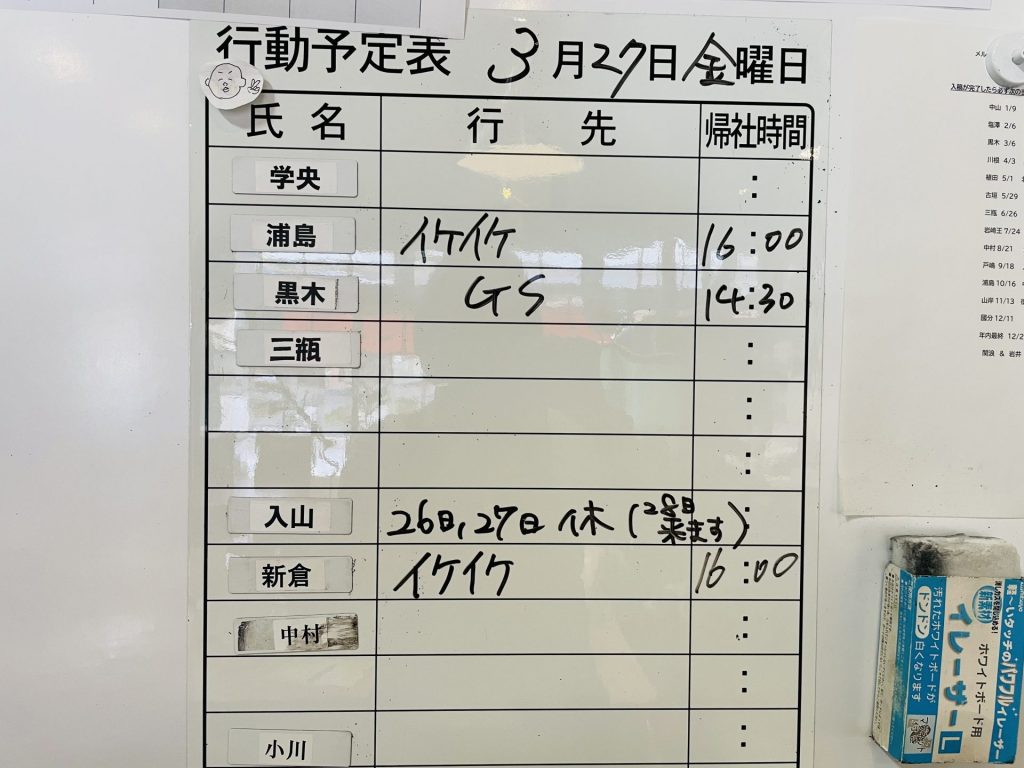 行動予定表 3月27日金曜日
氏名 行先 帰社時間
学央 :
浦島 イケイケ 16:00
黒木 GS 14:30
三瓶 :
:
:
入山 26日,27日 休(28日来ます) :
新倉 イケイケ 16:00
中村 :
:
小川 :
メル
入稿が完了したら必ず次の
中山 1/9
塩澤 2/6
黒木 3/6
川根 4/3
植田 5/1
古垣 5/29
三瓶 6/26
岩崎王 7/24
中村 8/21
戸嶋 9/18
浦島 10/16
山岸 11/13
國分 12/11
年内最終 12/2
関浪 & 岩井
軽〜いタッチのパワフルイレーザー
消しカスを閉じ込める!
新素材
ホワイトボード用
イレーザーL
汚れたホワイトボードが
ドンドン白くなります